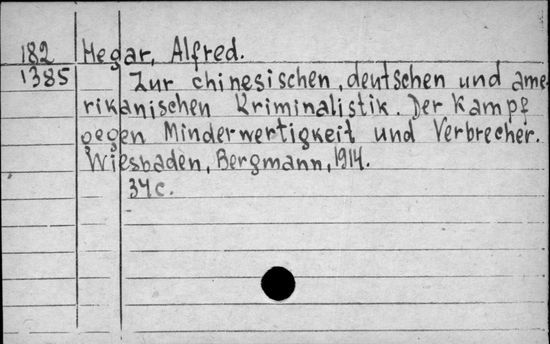 182 Hegar, Alfred.
1385 Zur chinesischen, deutschen und ame-
rikanischen Kriminalistik. Der Kampf
gegen Minderwertigkeit und Verbrecher.
Wiesbaden, Bergmann, 1914.
34c.